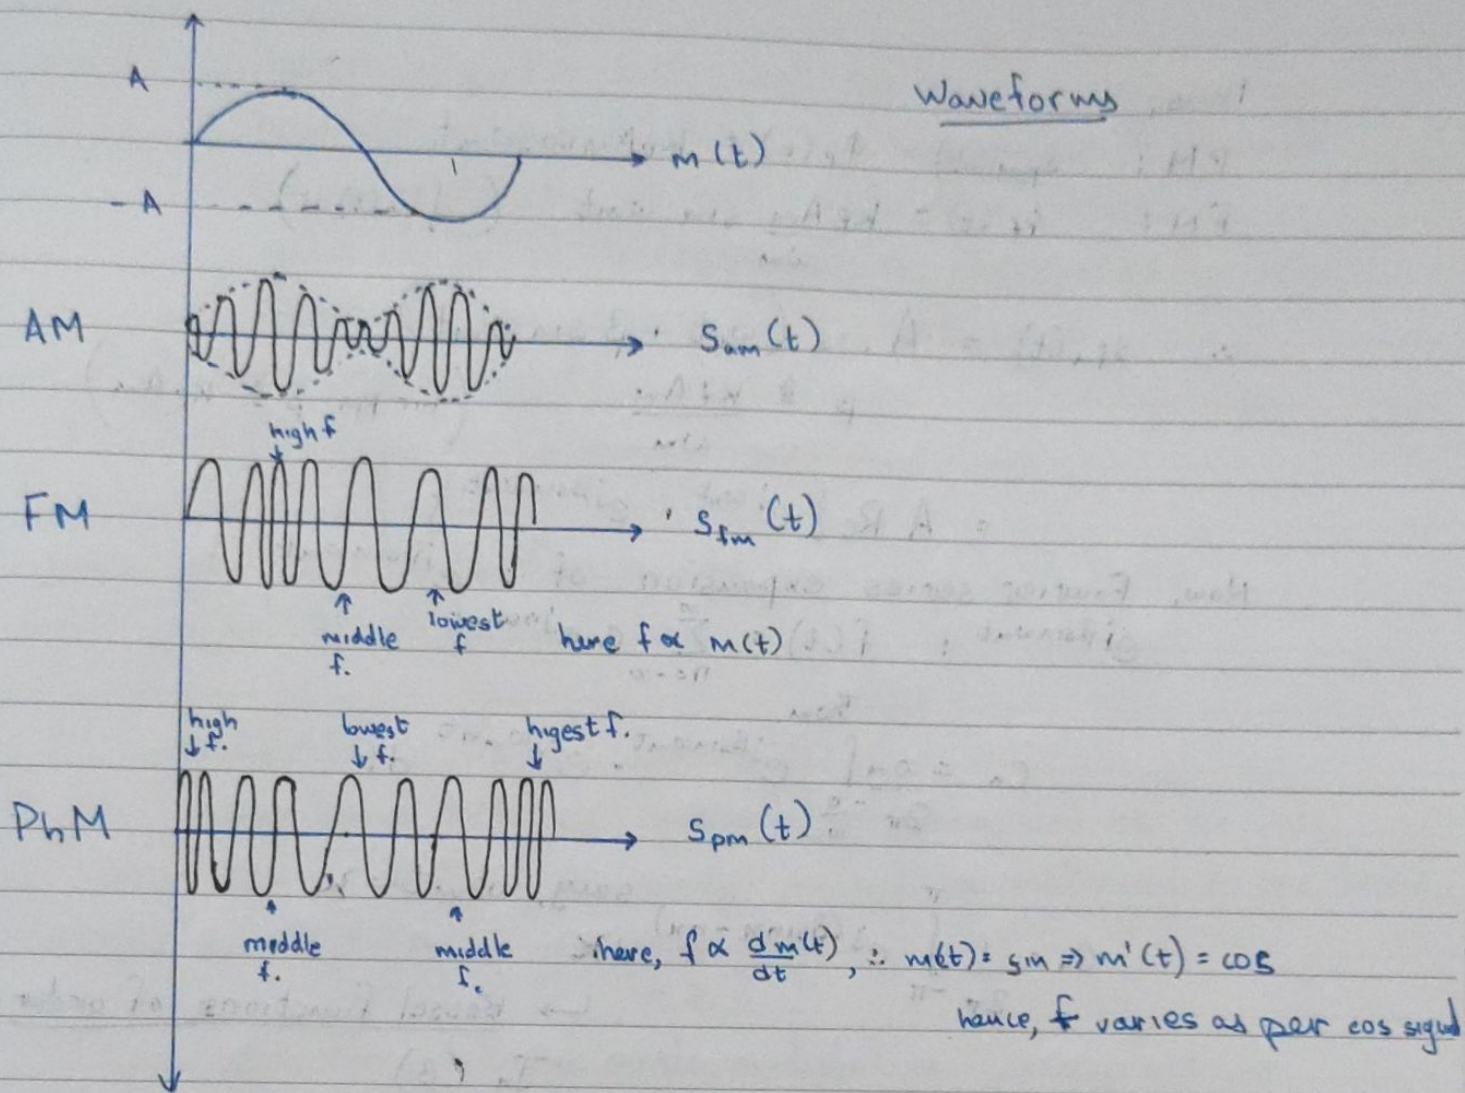 Waveforms
A
m(t)
-A
AM
Sam(t)
high f
FM
Sfm(t)
middle f.
lowest f
here f ∝ m(t)
high f.
lowest f.
higest f.
PhM
Spm(t)
middle f.
middle f.
here, f ∝ dm(t)/dt, ∴ m(t) = sin ⇒ m'(t) = cos
hence, f varies as per cos signal